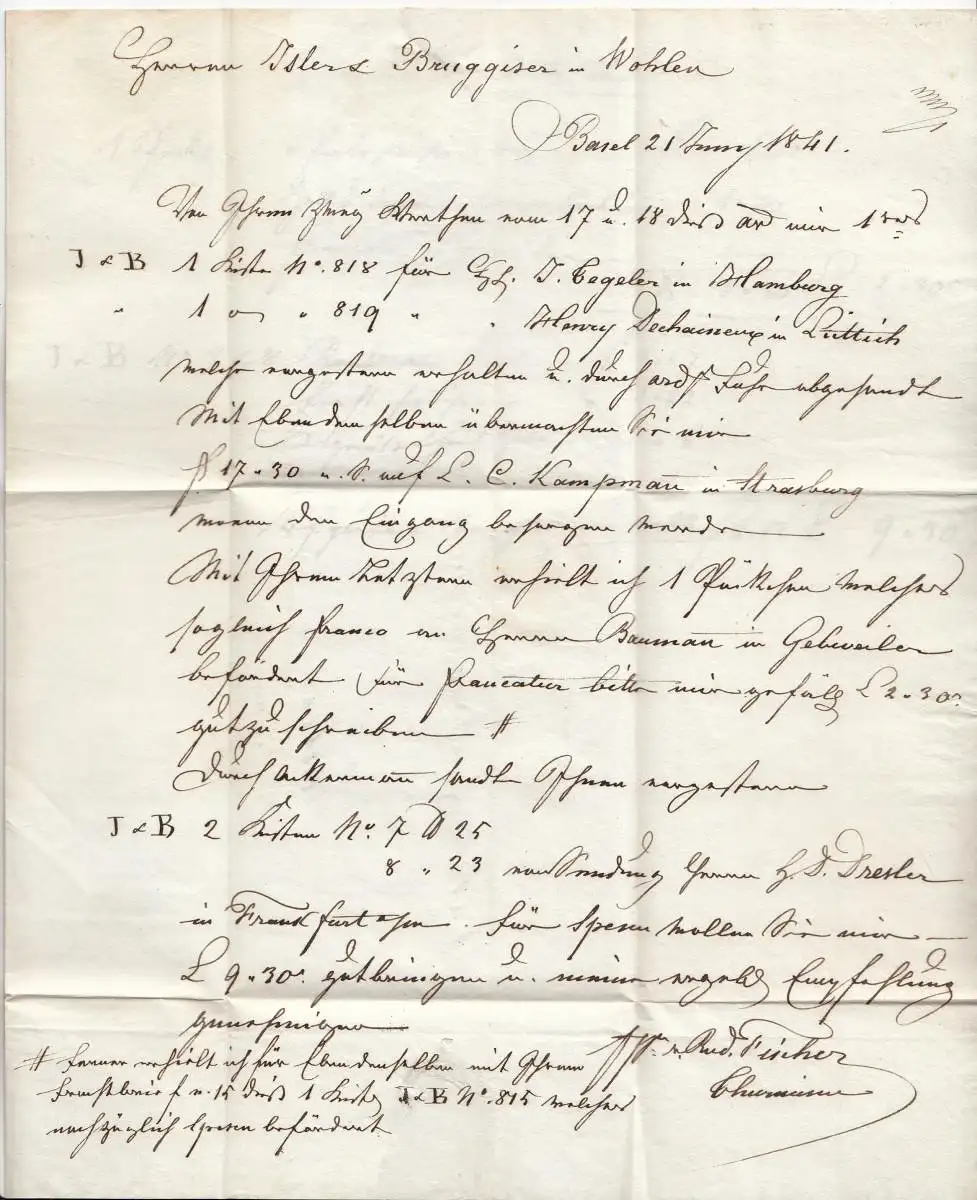 Herren Isler & Bruggiser in Wohlen
Basel 21 Juny 1841.
Von Ihren zwey Werthen vom 17 u. 18 dieß mir
J & B 1 Kiste No. 818 für HH. J. Tegeler in Hamburg
" 1 " " 819 " " Henry Dechaineux in Lüttich
welche vorgestern erhalten u. durch Fuhr abgesandt
Mit Ebendemselben übermachten Sie mir
17.30 auf L. C. Kampman in Strasburg
wovon den Eingang besorgen werde
Mit Ihrem Letztern erhielt ich 1 Päkchen welches
sogleich franco an Herrn Bauman in Gebweiler
befördert für Francatur bitte mir gefäll L 2.30.
gutzuschreiben #
Durch Akerman sandte Ihnen vorgestern
J & B 2 Kisten No. 7 25
8 " 23 von Sendung Herrn H. D. Dresler
in Frankfurt a/m. für Spesen wollen Sie mir
L 9.30. gutbringen u. meine Empfehlung
genehmigen
Rud. Fischer
# Ferner erhielt ich für Ebendenselben mit Ihrem
Frachtbrief v. 15 dieß 1 Kiste J & B No. 815 welches
nachzüglich Spesen befördert